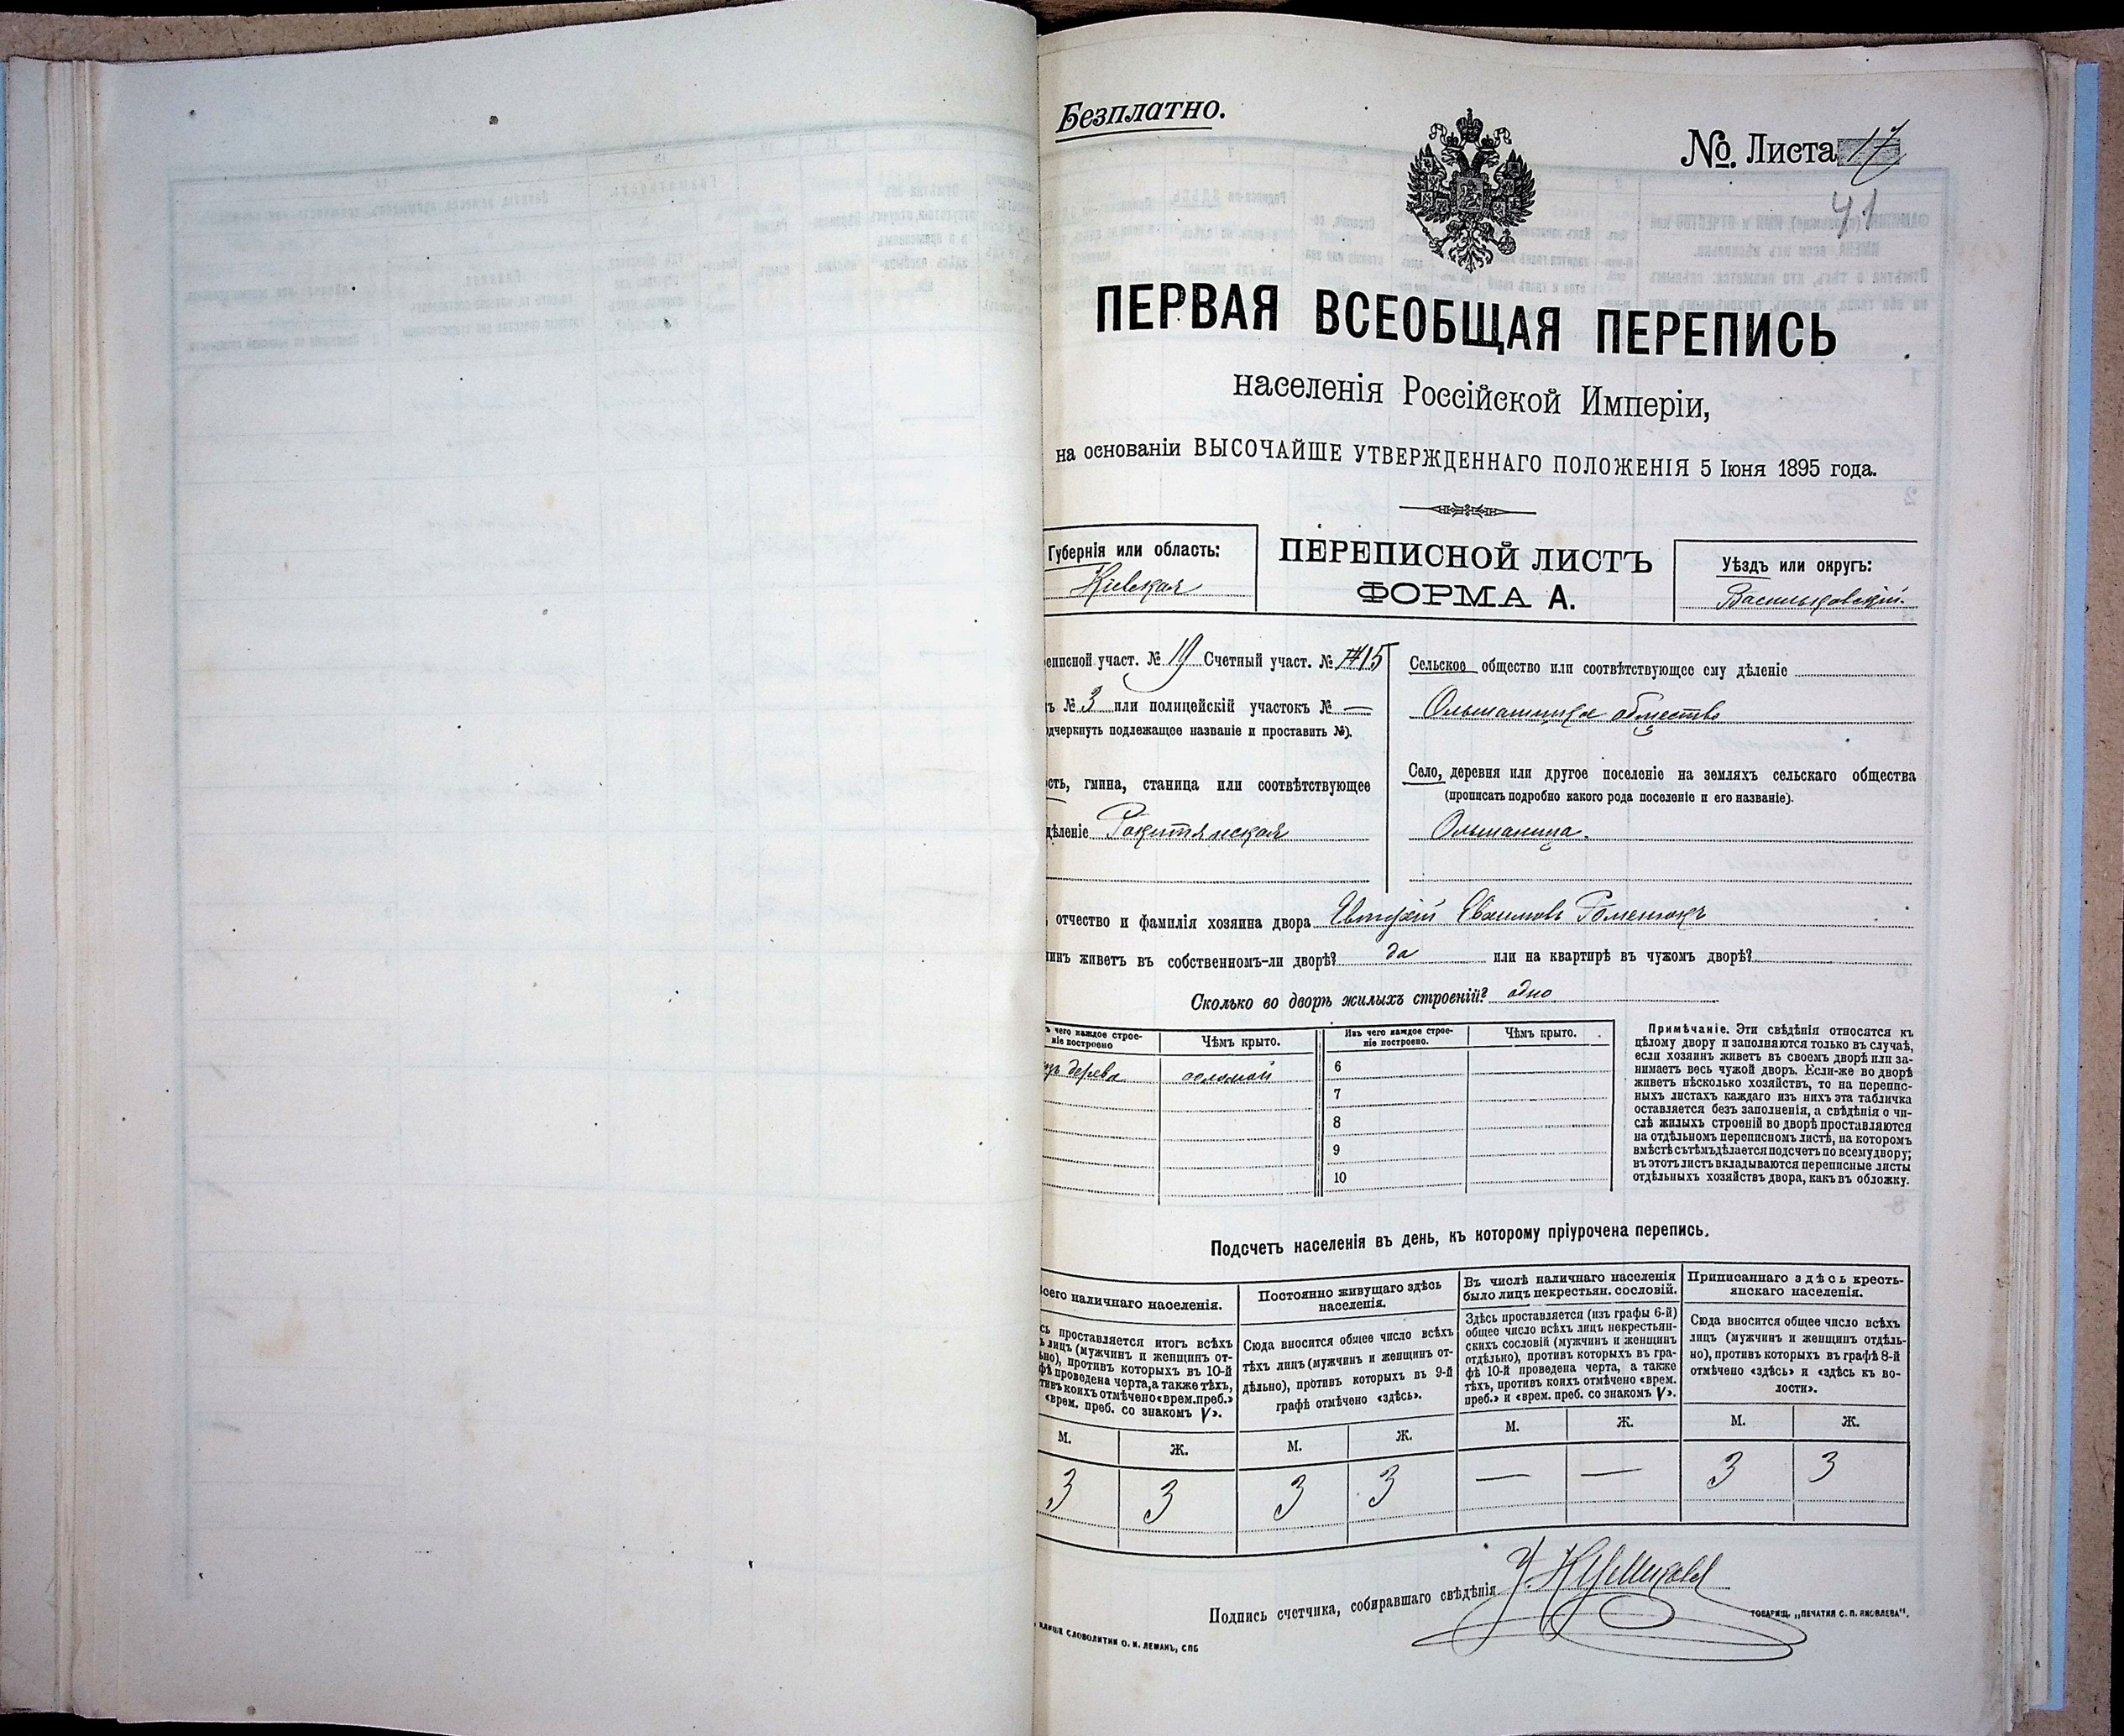 Безплатно.
№ Листа 17
41
ПЕРВАЯ ВСЕОБЩАЯ ПЕРЕПИСЬ
населенія Россійской Имперіи,
на основаніи ВЫСОЧАЙШЕ УТВЕРЖДЕННАГО ПОЛОЖЕНІЯ 5 Іюня 1895 года.
Губернія или область:
Кіевская
ПЕРЕПИСНОЙ ЛИСТЪ
ФОРМА А.
Уѣздъ или округъ:
Васильковскій.
еписной участ. № 19 Счетный участ. № 15
ъ № 3 или полицейскій участокъ № —
дчеркнуть подлежащее названіе и проставить №).
сть, гмина, станица или соотвѣтствующее
дѣленіе Ракитянская
Сельское общество или соотвѣтствующее ему дѣленіе
Ольшаницкое общество
Село, деревня или другое поселеніе на земляхъ сельскаго общества
(прописать подробно какого рода поселеніе и его названіе).
Ольшаница.
отчество и фамилія хозяина двора Евтихій Евхимовъ Роменюкъ
инъ живетъ въ собственномъ-ли дворѣ? да или на квартирѣ въ чужомъ дворѣ?
Сколько во дворѣ жилыхъ строеній? одно
ъ чего каждое строеніе построено
Чѣмъ крыто.
Изъ чего каждое строеніе построено.
Чѣмъ крыто.
изъ дерева соломой
6
7
8
9
10
Примѣчаніе. Эти свѣдѣнія относятся къ
цѣлому двору и заполняются только въ случаѣ,
если хозяинъ живетъ въ своемъ дворѣ или за-
нимаетъ весь чужой дворъ. Если-же во дворѣ
живетъ нѣсколько хозяйствъ, то на перепис-
ныхъ листахъ каждаго изъ нихъ эта табличка
оставляется безъ заполненія, а свѣдѣнія о чи-
слѣ жилыхъ строеній во дворѣ проставляются
на отдѣльномъ переписномъ листѣ, на которомъ
вмѣстѣ съ тѣмъ дѣлается подсчетъ по всему двору;
въ этотъ листъ вкладываются переписные листы
отдѣльныхъ хозяйствъ двора, какъ въ обложку.
Подсчетъ населенія въ день, къ которому пріурочена перепись.
сего наличнаго населенія.
сь проставляется итогъ всѣхъ
ъ лицъ (мужчинъ и женщинъ от-
ьно), противъ которыхъ въ 10-й
фѣ проведена черта, а также тѣхъ,
тивъ коихъ отмѣчено «врем. преб.»
«врем. преб. со знакомъ V».
Постоянно живущаго здѣсь
населенія.
Сюда вносится общее число всѣхъ
тѣхъ лицъ (мужчинъ и женщинъ от-
дѣльно), противъ которыхъ въ 9-й
графѣ отмѣчено «здѣсь».
Въ числѣ наличнаго населенія
было лицъ некрестьян. сословій.
Здѣсь проставляется (изъ графы 6-й)
общее число всѣхъ лицъ некрестьян-
скихъ сословій (мужчинъ и женщинъ
отдѣльно), противъ которыхъ въ гра-
фѣ 10-й проведена черта, а также
тѣхъ, противъ коихъ отмѣчено «врем.
преб.» и «врем. преб. со знакомъ V».
Приписаннаго здѣсь кресть-
янскаго населенія.
Сюда вносится общее число всѣхъ
лицъ (мужчинъ и женщинъ отдѣль-
но), противъ которыхъ въ графѣ 8-й
отмѣчено «здѣсь» и «здѣсь къ во-
лости».
М. Ж. М. Ж. М. Ж. М. Ж.
3 3 3 3 — — 3 3
Подпись счетчика, собиравшаго свѣдѣнія
СЛОВОЛИТНИ О. И. ЛЕМАНЪ, СПБ
ТОВАРИЩ. „ПЕЧАТНЯ С. П. ЯКОВЛЕВА".